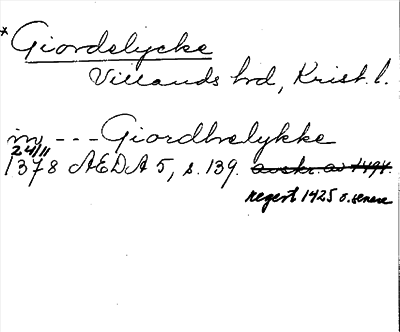 * Giordslycke
Villands hd, Krist. l.
in --- Giordhrelykke
24/11
1378 AEDA 5, s. 139. avskr. av 1494.
regest 1425 o. senare